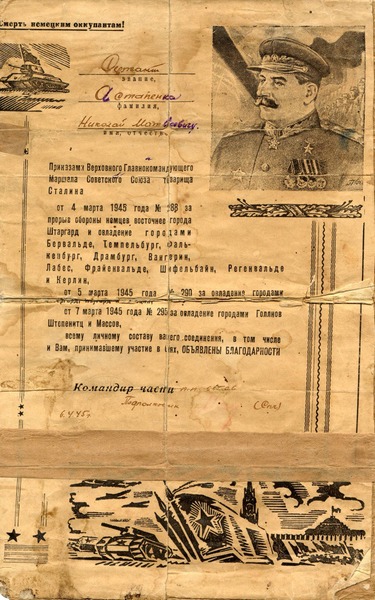 Смерть немецким оккупантам!
звание,
фамилия,
Николай
имя, отчество
Приказами Верховного Главнокомандующего
Маршала Советского Союза товарища
Сталина
от 4 марта 1945 года № 288 за
прорыв обороны немцев восточнее города
Штаргард и овладение городами
Бервальде, Темпельбург, Фаль-
кенбург, Драмбург, Вангерин,
Лабес, Фрайенвальде, Шифельбайн, Регенвальде
и Керлин,
от 5 марта 1945 года № 290 за овладение городами
от 7 марта 1945 года № 295 за овладение городами Голлнов
Штепенитц и Массов,
всему личному составу вашего соединения, в том числе
и Вам, принимавшему участие в них, ОБЪЯВЛЕНЫ БЛАГОДАРНОСТИ
Командир части